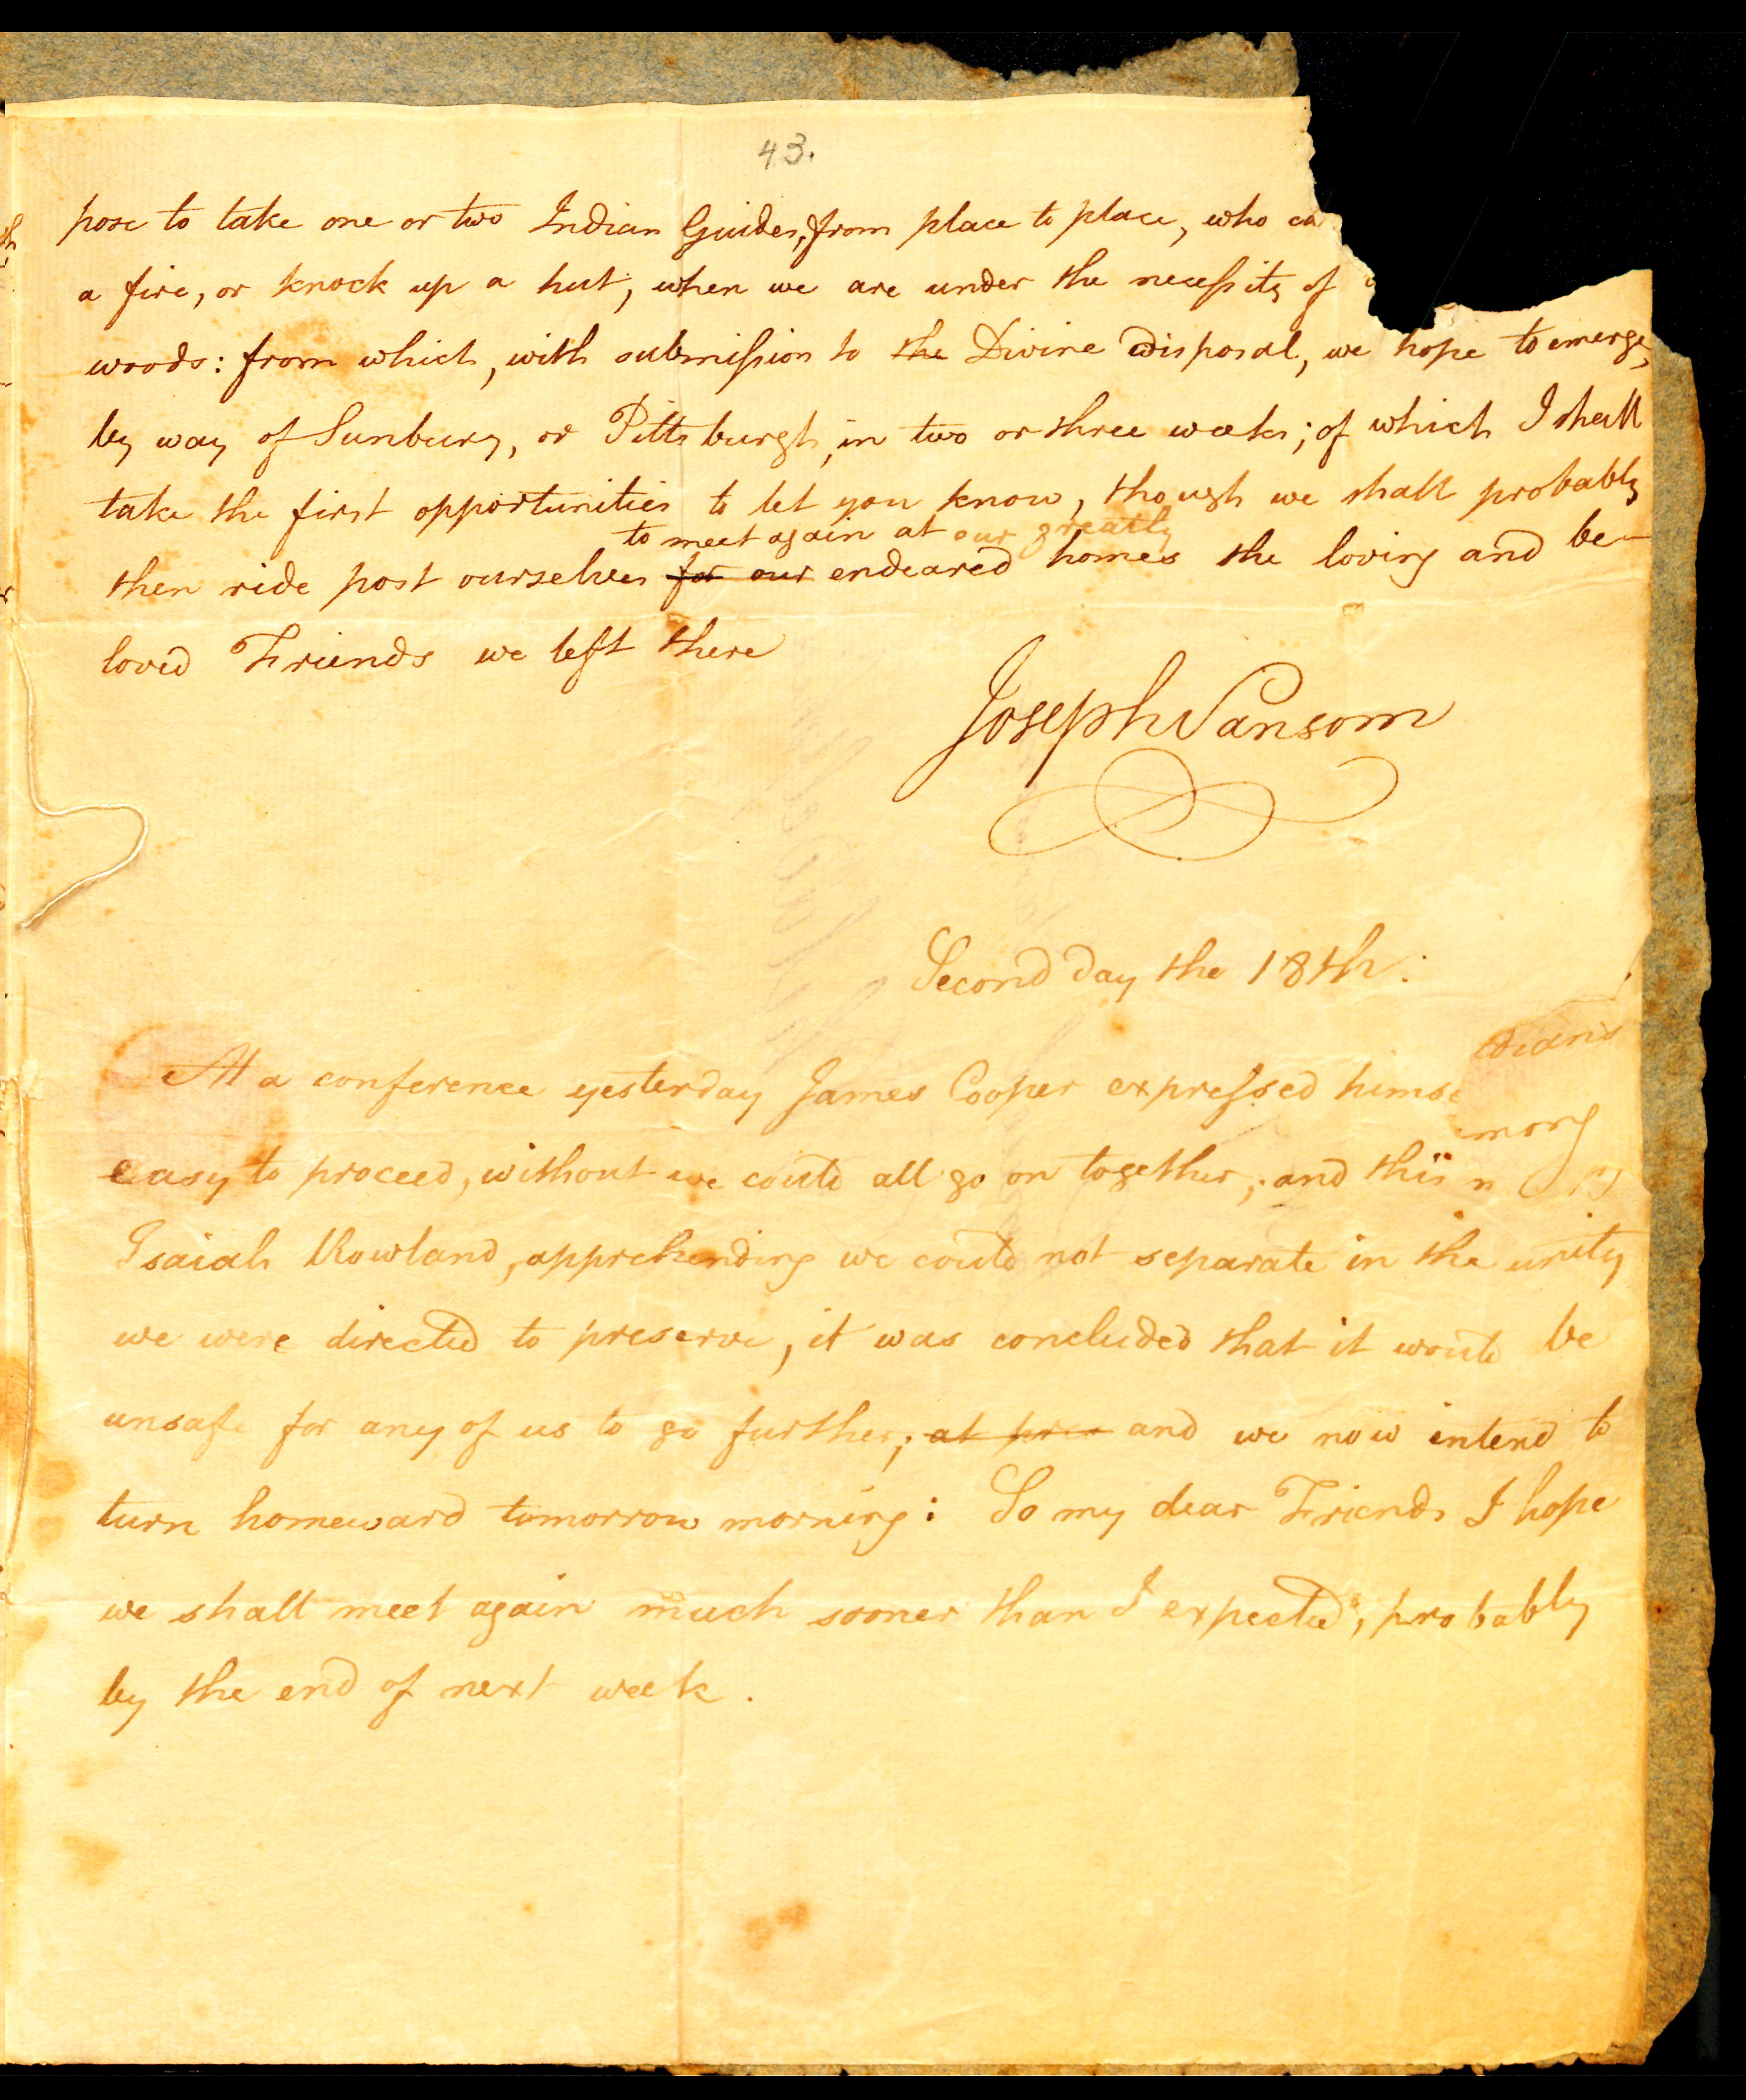 43.
pose to take one or two Indian Guides, from place to place, who ca
a fire, or knock up a hut, when we are under the necessity of
woods: from which, with submission to the Divine disposal, we hope to emerge,
by way of Sunbury, or Pittsburgh, in two or three weeks; of which I shall
take the first opportunities to let you know, though we shall probably
to meet again at our greatly
then ride post ourselves for our endeared homes the loving and be-
loved Friends we left there
Joseph Sansom
Second day the 18th.
dians
At a conference yesterday James Cooper expressed himse
mong
easy to proceed, without we could all go on together; and this
Isaiah Rowland, apprehending we could not separate in the unity
we were directed to preserve, it was concluded that it would be
unsafe for any of us to go further; at pres and we now intend to
turn homeward tomorrow morning: So my dear Friends I hope
we shall meet again much sooner than I expected, probably
by the end of next week.